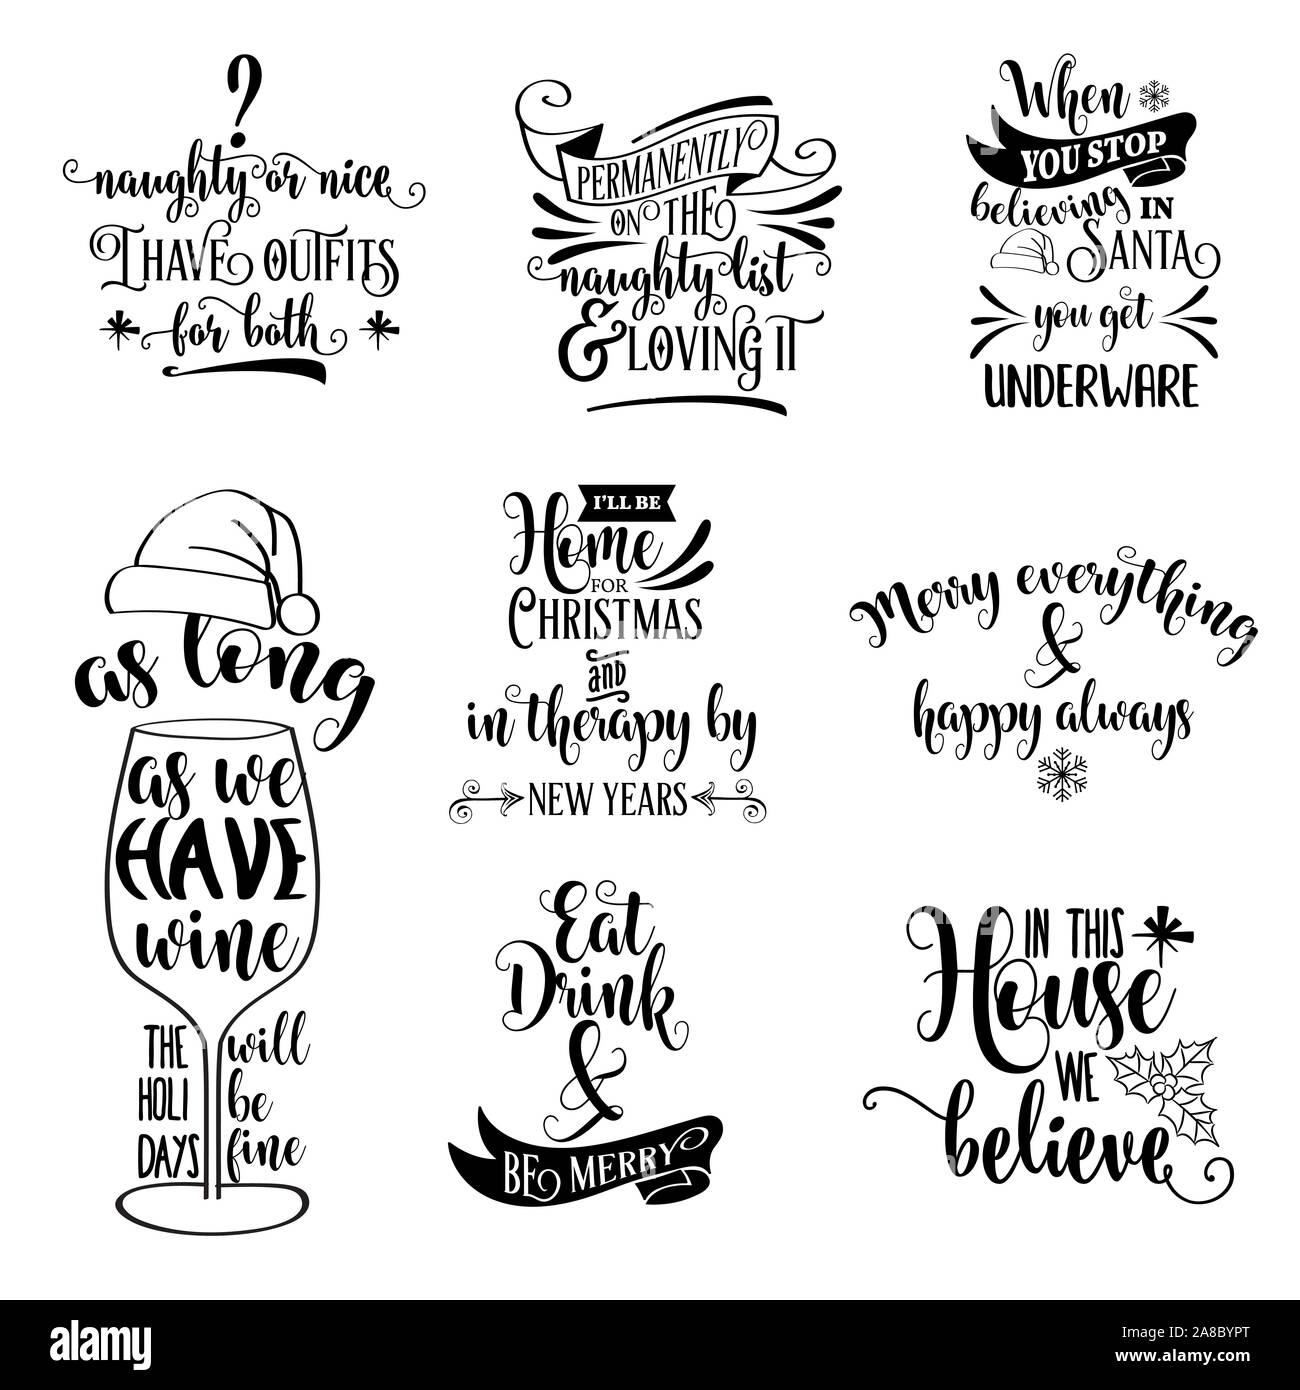 ?
naughty or nice
I HAVE OUTFITS
for both
PERMANENTLY
ON THE
naughty list
& LOVING IT
When
YOU STOP
believing IN
SANTA
you get
UNDERWARE
as long
as we
HAVE
wine
THE will
HOLI be
DAYS fine
I'LL BE
Home
FOR
CHRISTMAS
and
in therapy by
NEW YEARS
Merry everything
&
happy always
Eat
Drink
&
BE MERRY
IN THIS
House
WE
believe
alamy
Image ID: 2A8BYPT
www.alamy.com